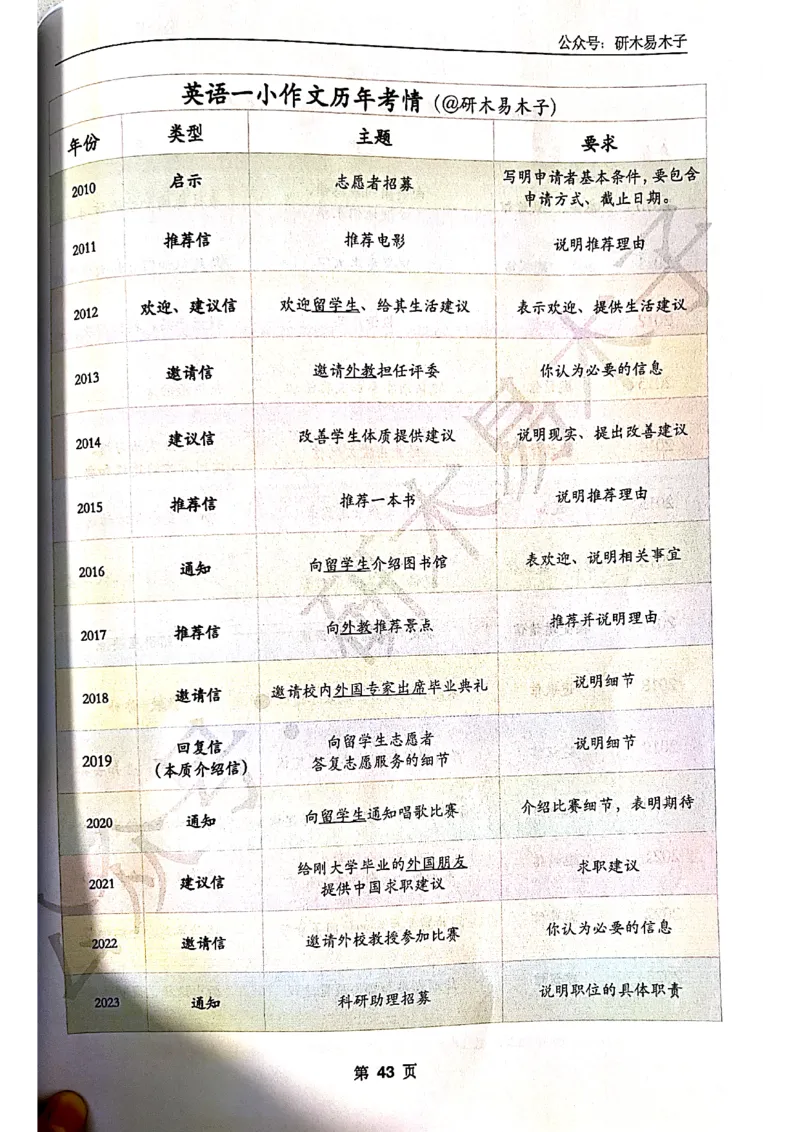 公众号：研木易木子
英语一小作文历年考情（@研木易木子）
年份 类型 主题 要求
2010 启示 志愿者招募 写明申请者基本条件，要包含
申请方式、截止日期。
2011 推荐信 推荐电影 说明推荐理由
2012 欢迎、建议信 欢迎留学生、给其生活建议 表示欢迎、提供生活建议
2013 邀请信 邀请外教担任评委 你认为必要的信息
2014 建议信 改善学生体质提供建议 说明现实、提出改善建议
2015 推荐信 推荐一本书 说明推荐理由
2016 通知 向留学生介绍图书馆 表欢迎、说明相关事宜
2017 推荐信 向外教推荐景点 推荐并说明理由
2018 邀请信 邀请校内外国专家出席毕业典礼 说明细节
2019 回复信
（本质介绍信） 向留学生志愿者
答复志愿服务的细节 说明细节
2020 通知 向留学生通知唱歌比赛 介绍比赛细节，表明期待
2021 建议信 给刚大学毕业的外国朋友
提供中国求职建议 求职建议
2022 邀请信 邀请外校教授参加比赛 你认为必要的信息
2023 通知 科研助理招募 说明职位的具体职责
公众号：研木易木子
第 43 页